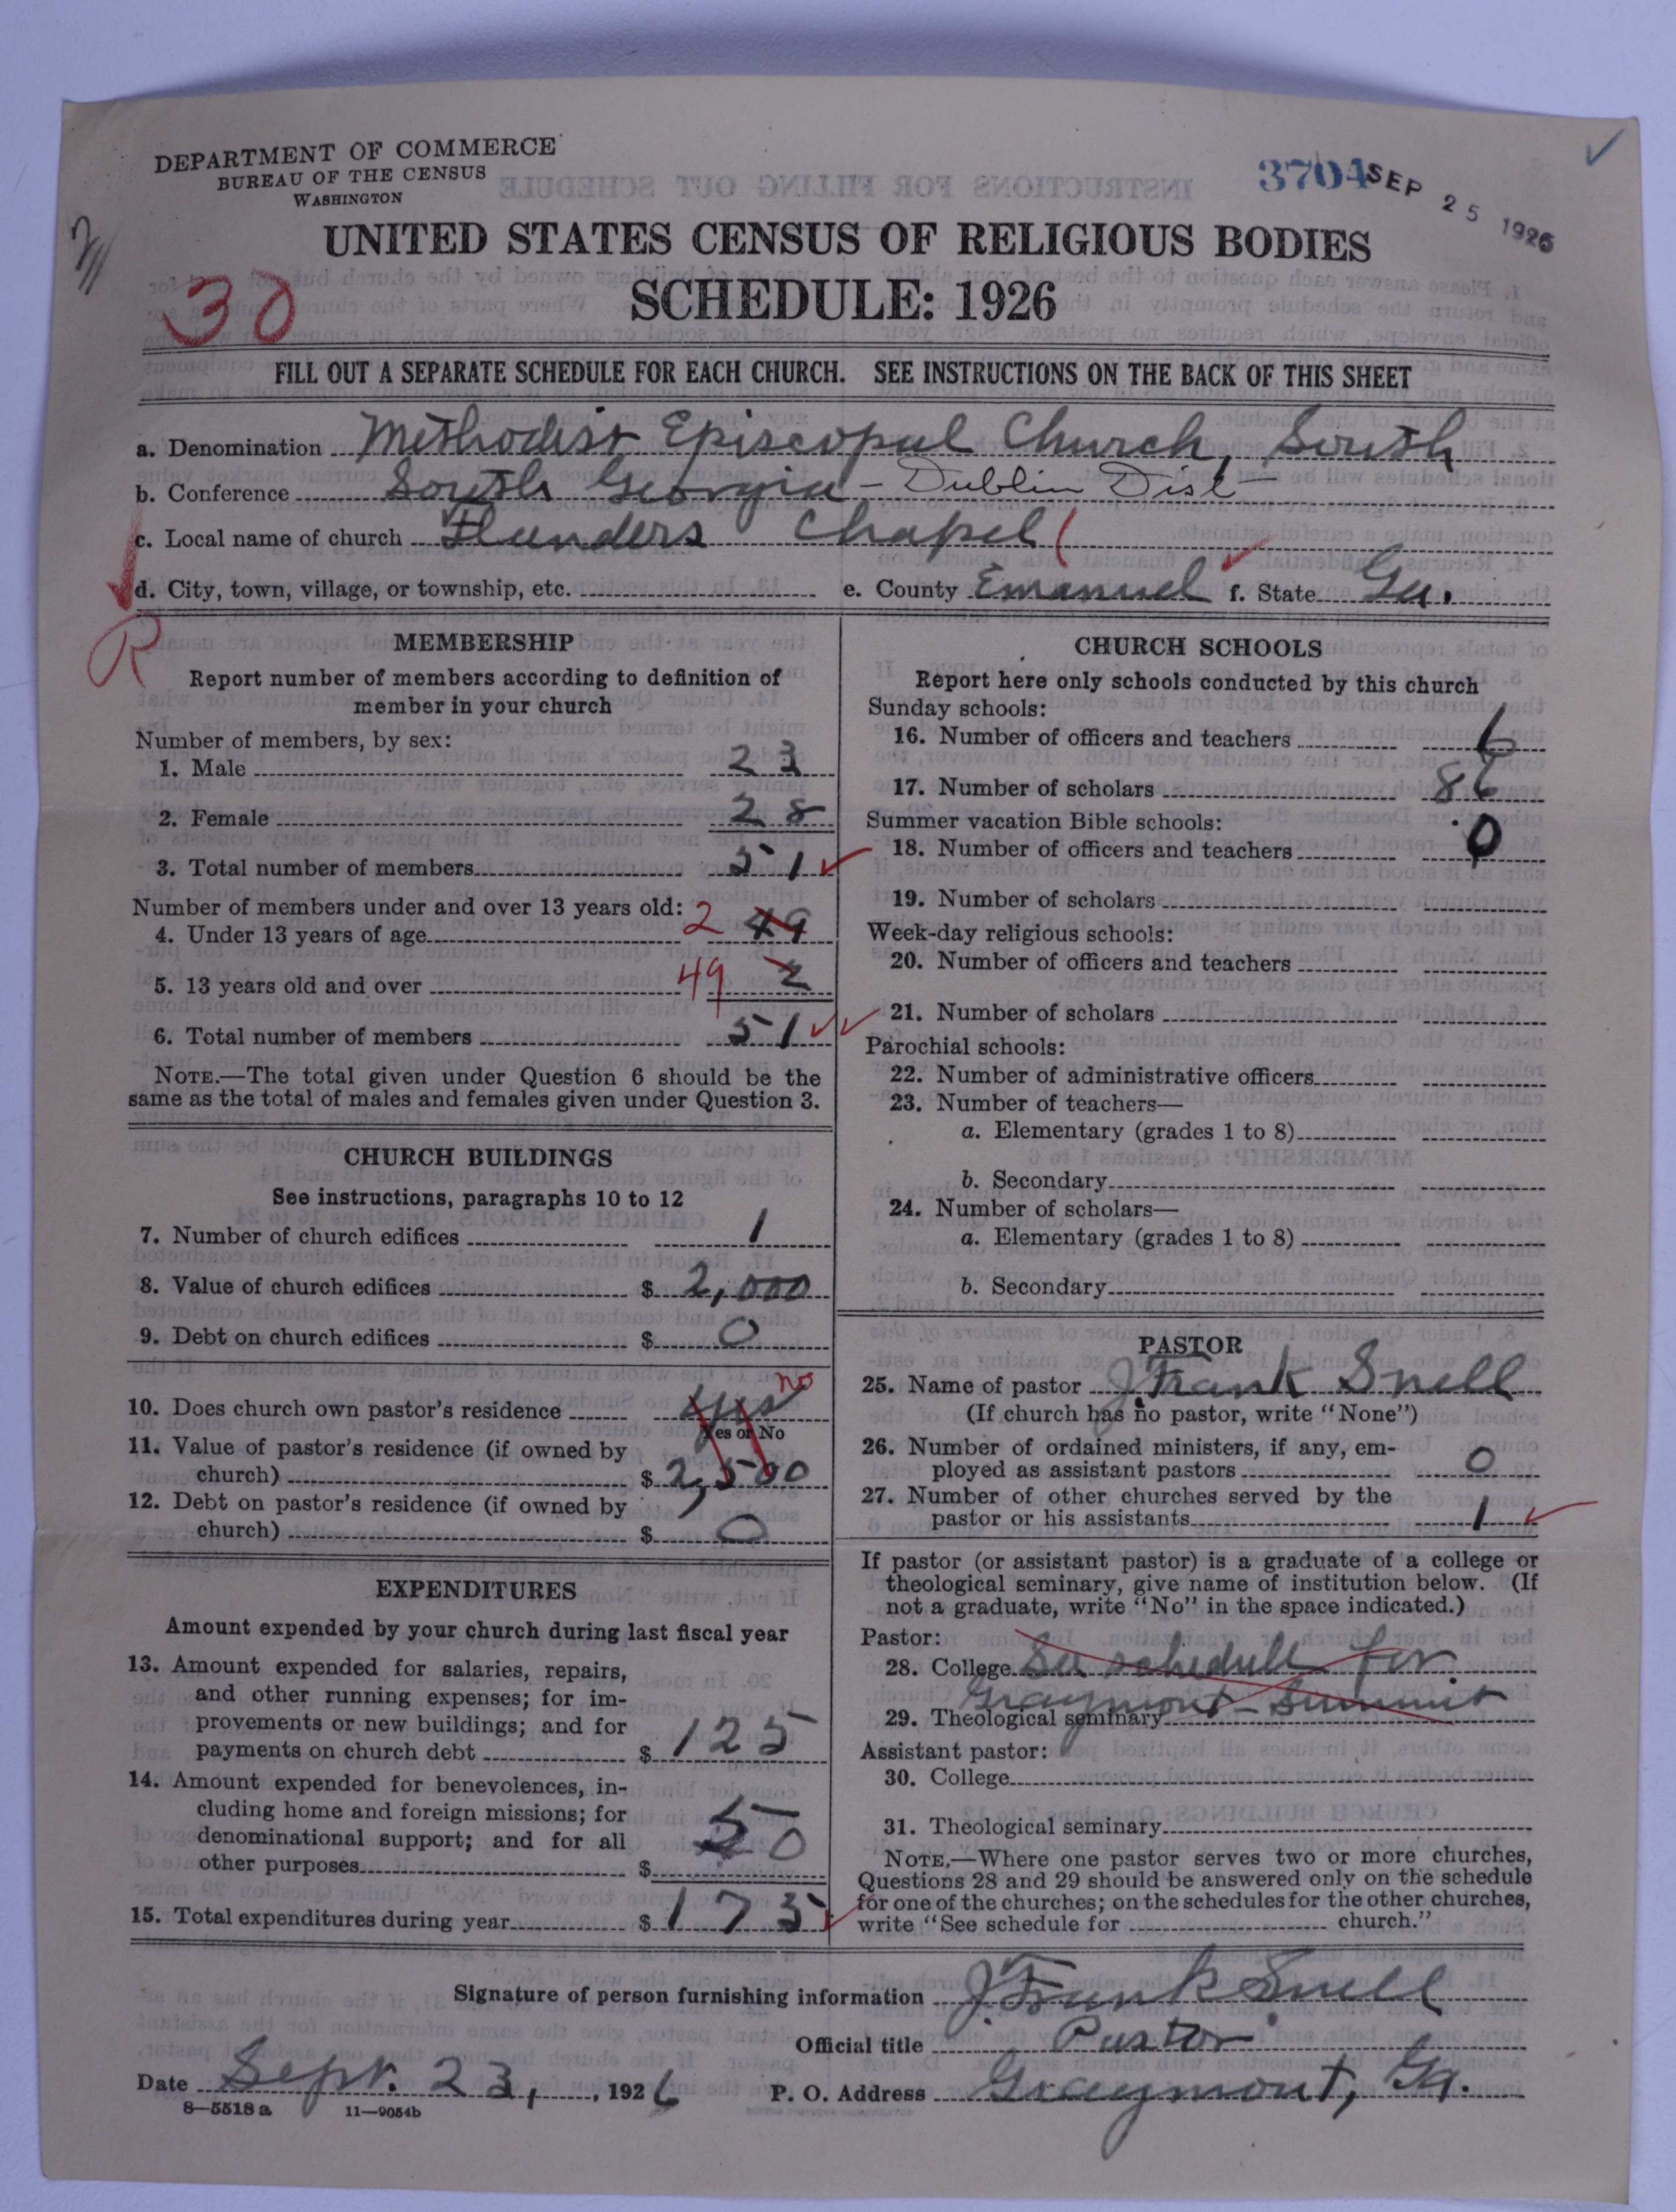 DEPARTMENT OF COMMERCE
BUREAU OF THE CENSUS
WASHINGTON
3704 SEP 25 1926
UNITED STATES CENSUS OF RELIGIOUS BODIES
30
SCHEDULE: 1926
FILL OUT A SEPARATE SCHEDULE FOR EACH CHURCH. SEE INSTRUCTIONS ON THE BACK OF THIS SHEET
a. Denomination Methodist Episcopal Church, South
b. Conference South Georgia - Dublin Dist -
c. Local name of church Flanders Chapel
d. City, town, village, or township, etc. e. County Emanuel f. State Ga.
R
MEMBERSHIP
Report number of members according to definition of
member in your church
Number of members, by sex:
1. Male 23
2. Female 28
3. Total number of members 51
Number of members under and over 13 years old:
4. Under 13 years of age 2 49
5. 13 years old and over 49 2
6. Total number of members 51
NOTE.—The total given under Question 6 should be the
same as the total of males and females given under Question 3.
CHURCH BUILDINGS
See instructions, paragraphs 10 to 12
7. Number of church edifices 1
8. Value of church edifices $ 2,000
9. Debt on church edifices $ 0
10. Does church own pastor's residence yes no
Yes or No
11. Value of pastor's residence (if owned by
church) $ 2,500
12. Debt on pastor's residence (if owned by
church) $ 0
EXPENDITURES
Amount expended by your church during last fiscal year
13. Amount expended for salaries, repairs,
and other running expenses; for im-
provements or new buildings; and for
payments on church debt $ 125
14. Amount expended for benevolences, in-
cluding home and foreign missions; for
denominational support; and for all
other purposes $ 50
15. Total expenditures during year $ 175
CHURCH SCHOOLS
Report here only schools conducted by this church
Sunday schools:
16. Number of officers and teachers 6
17. Number of scholars 86
Summer vacation Bible schools:
18. Number of officers and teachers 0
19. Number of scholars
Week-day religious schools:
20. Number of officers and teachers
21. Number of scholars
Parochial schools:
22. Number of administrative officers
23. Number of teachers—
a. Elementary (grades 1 to 8)
b. Secondary
24. Number of scholars—
a. Elementary (grades 1 to 8)
b. Secondary
PASTOR
25. Name of pastor J. Frank Snell
(If church has no pastor, write "None")
26. Number of ordained ministers, if any, em-
ployed as assistant pastors 0
27. Number of other churches served by the
pastor or his assistants 1
If pastor (or assistant pastor) is a graduate of a college or
theological seminary, give name of institution below. (If
not a graduate, write "No" in the space indicated.)
Pastor:
28. College See schedule for
Graymont - Summit
29. Theological seminary
Assistant pastor:
30. College
31. Theological seminary
NOTE.—Where one pastor serves two or more churches,
Questions 28 and 29 should be answered only on the schedule
for one of the churches; on the schedules for the other churches,
write "See schedule for church."
Signature of person furnishing information J. Frank Snell
Official title Pastor
Date Sept. 23, , 1926 P. O. Address Graymont, Ga.
8—5518 a 11—9054b